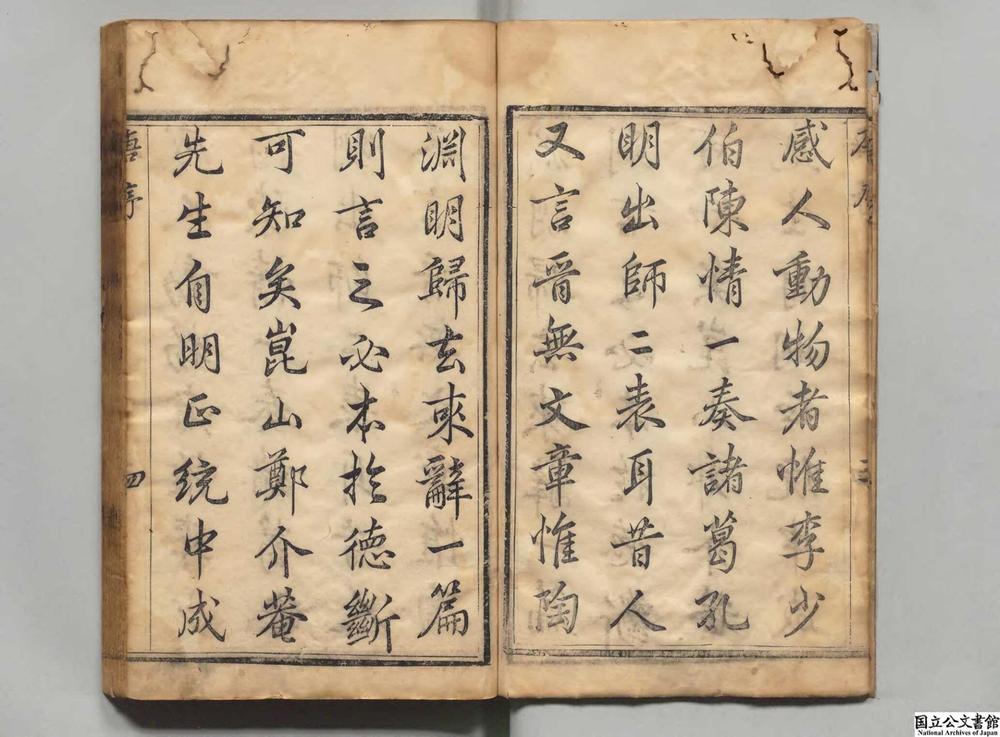 感人動物者惟李少
伯陳情一奏諸葛孔
明出師二表耳昔人
又言晉無文章惟陶
淵明歸去來辭一篇
則言之必本於德斷
可知矣崑山鄭介菴
先生自明正統中成
序
四
国立公文書館
National Archives of Japan